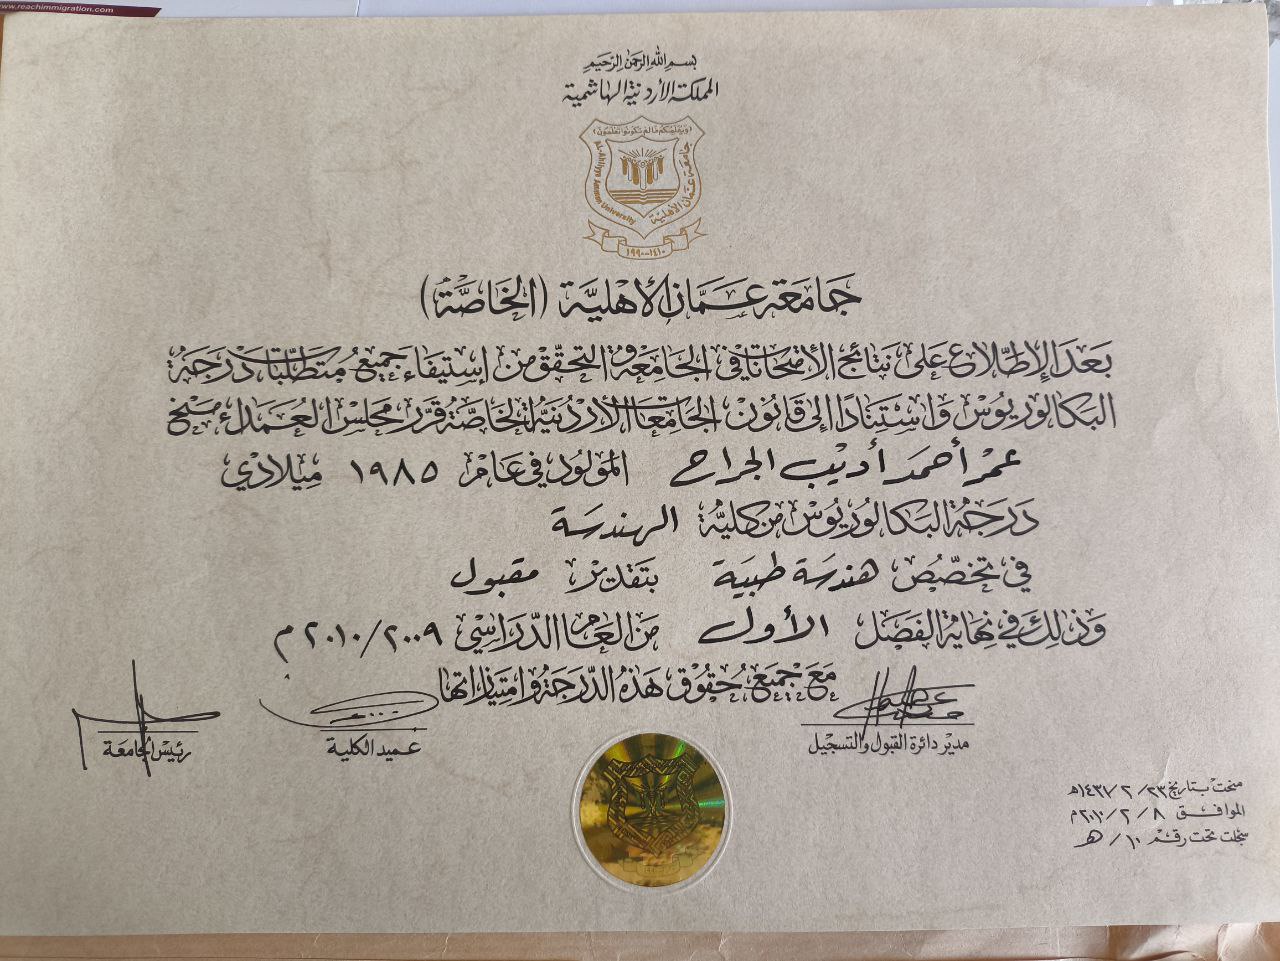 www.reachimmigration.com
بسم الله الرحمن الرحيم
المملكة الأردنية الهاشمية
(وَيُعَلِّمُكُم مَّا لَمْ تَكُونُوا تَعْلَمُونَ)
Al-Ahliyya Amman University
جامعة عمان الأهلية
١٤١٠-١٩٩٠
جَامعَة عَمَّان الأهْليَّة (الخَاصَّة)
بَعد الإطّلاع على نتائج الامتحانات في الجامعة والتحقّق من إستيفاء جميع متطلّبات درجة
البكالوريوس واستنادًا إلى قانون الجامعات الأردنية الخاصّة قرّر مجلس العمداء منح
عمر أحمد أديب الجراح المولود في عام ١٩٨٥ ميلادي
درجة البكالوريوس من كلية الهندسة
في تخصّص هندسة طبية بتقدير مقبول
وذلك في نهاية الفصل الأول من العام الدّراسي ٢٠١٠/٢٠٠٩ م
مع جميع حقوق هذه الدّرجة وامتيازاتها
مدير دائرة القبول والتسجيل
عميد الكلية
رئيس الجامعة
منحت بتاريخ ٢٣ / ٢ / ١٤٣١هـ
الموافق ٨ / ٢ / ٢٠١٠م
سجلت تحت رقم ١٠ / هـ